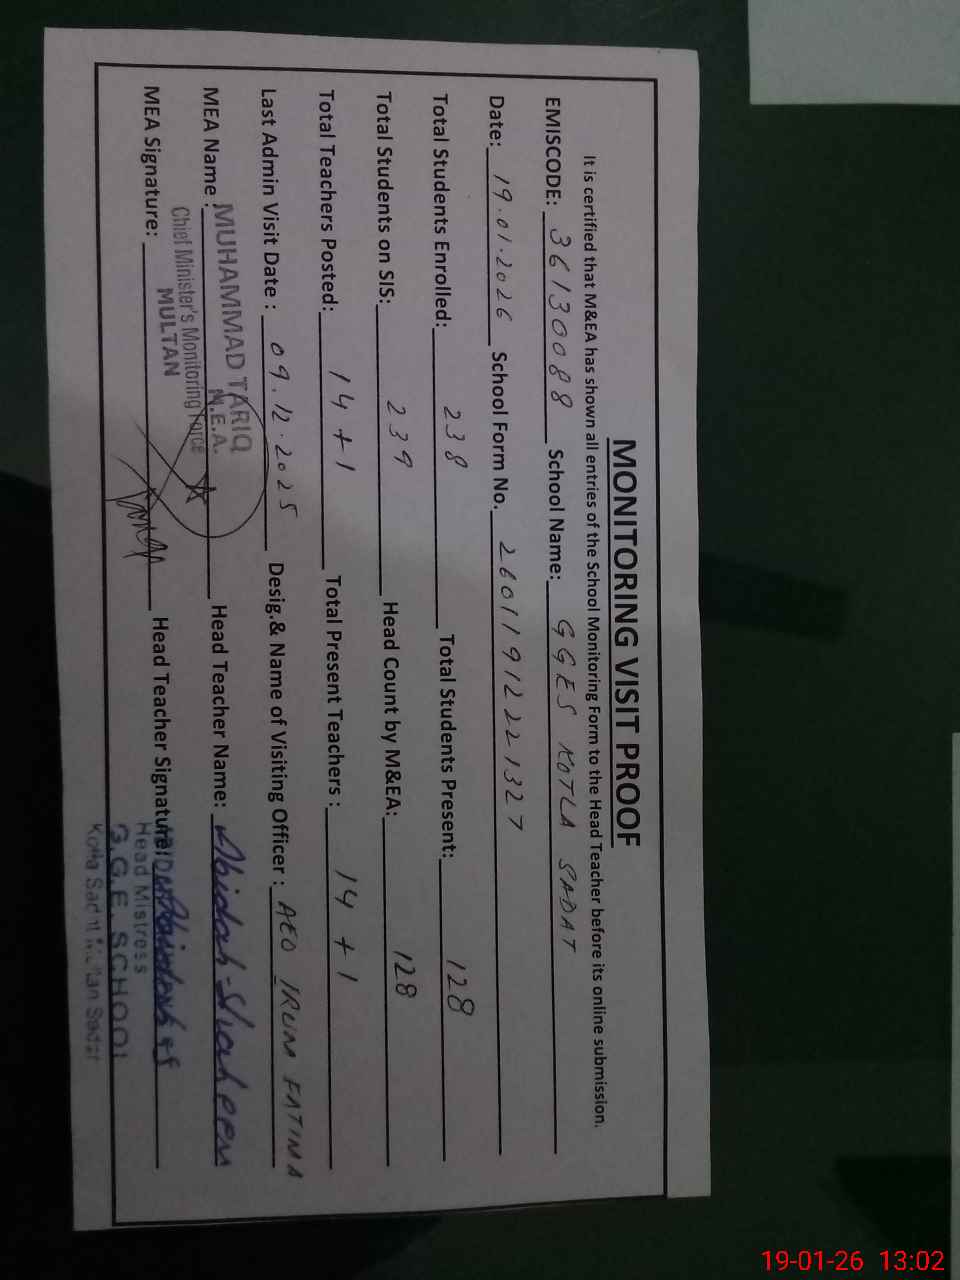 MONITORING VISIT PROOF
It is certified that M&EA has shown all entries of the School Monitoring Form to the Head Teacher before its online submission.
EMISCODE: 36130088 School Name: GGES KOTLA SADAT
Date: 19.01.2026 School Form No. 26011912221327
Total Students Enrolled: 238 Total Students Present: 128
Total Students on SIS: 239 Head Count by M&EA: 128
Total Teachers Posted: 14+1 Total Present Teachers : 14+1
Last Admin Visit Date : 09.12.2025 Desig.& Name of Visiting Officer : AEO IRUM FATIMA
MEA Name : MUHAMMAD TARIQ Head Teacher Name: Abidah-Shaheen
M.E.A.
Chief Minister's Monitoring Force
MULTAN
MEA Signature: Head Teacher Signature:
Head Mistress
G.G.E. SCHOOL
Kotla Sadat Multan Sadar
19-01-26 13:02